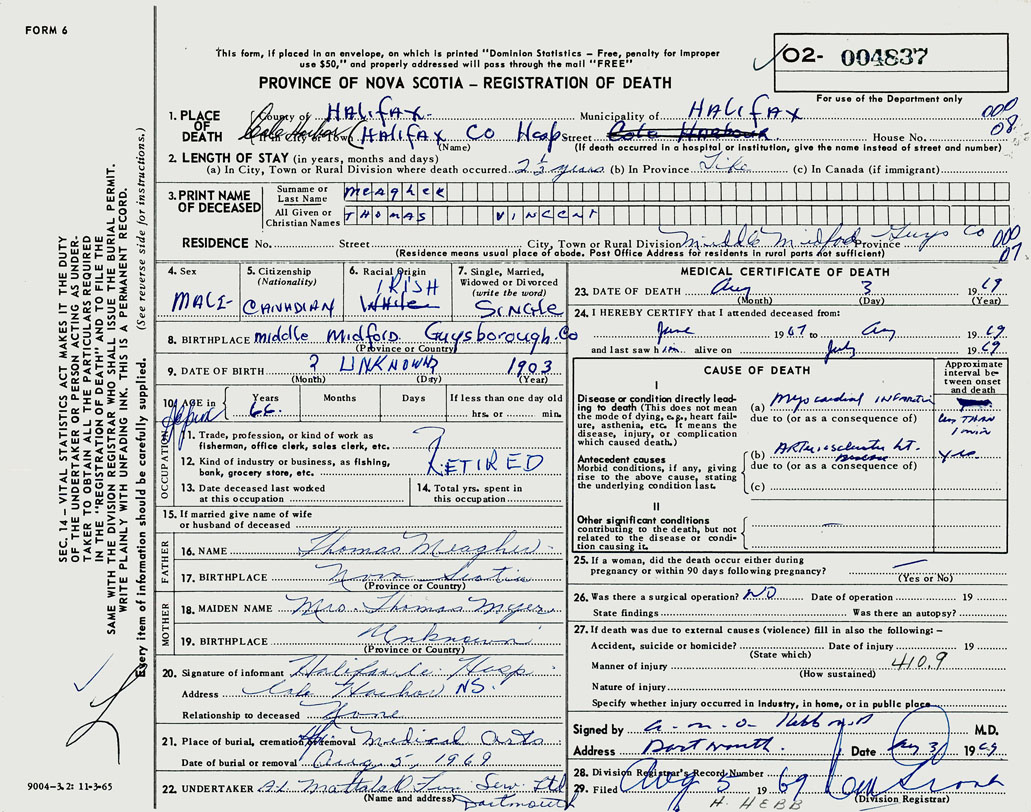 FORM 6
This form, if placed in an envelope, on which is printed "Dominion Statistics – Free, penalty for improper
use $50," and properly addressed will pass through the mail "FREE"
O2- 004837
For use of the Department only
PROVINCE OF NOVA SCOTIA – REGISTRATION OF DEATH
1. PLACE OF DEATH County of Halifax Municipality of HALIFAX 000
Cole Harbour City or Town Halifax Co Hosp Street Cole Harbour House No. 08
(Name) (If death occurred in a hospital or institution, give the name instead of street and number)
2. LENGTH OF STAY (in years, months and days)
(a) In City, Town or Rural Division where death occurred 2½ years (b) In Province Life (c) In Canada (if immigrant)
3. PRINT NAME OF DECEASED
Surname or Last Name Meagher
All Given or Christian Names THOMAS VINCENT
RESIDENCE No. Street City, Town or Rural Division Middle Milford Province Guys Co 000
(Residence means usual place of abode. Post Office Address for residents in rural parts not sufficient) 07
4. Sex MALE
5. Citizenship (Nationality) CANADIAN
6. Racial Origin IRISH White
7. Single, Married, Widowed or Divorced (write the word) SINGLE
8. BIRTHPLACE middle Milford Guysborough Co
(Province or Country)
9. DATE OF BIRTH ? UNKNOWN 1903
(Month) (Day) (Year)
10. AGE in Years Months Days If less than one day
66 hrs. or min.
OCCUPATION
11. Trade, profession, or kind of work as
fisherman, office clerk, sales clerk, etc.
12. Kind of industry or business, as fishing,
bank, grocery store, etc.
RETIRED
13. Date deceased last worked
at this occupation
14. Total yrs. spent in
this occupation
15. If married give name of wife
or husband of deceased
FATHER
16. NAME Thomas Meagher
17. BIRTHPLACE Nova Scotia
(Province or Country)
MOTHER
18. MAIDEN NAME Mrs. Thomas Myer
19. BIRTHPLACE Unknown
(Province or Country)
20. Signature of informant Halifax Co Hosp
Address Cole Harbour NS.
Relationship to deceased None
21. Place of burial, cremation or removal Medical Arts
Date of burial or removal Aug 5, 1969
22. UNDERTAKER Mattatall Fun Serv Ltd
(Name and address) Dartmouth
MEDICAL CERTIFICATE OF DEATH
23. DATE OF DEATH Aug 3 1969
(Month) (Day) (Year)
24. I HEREBY CERTIFY that I attended deceased from:
June 1967 to Aug 1969
and last saw him alive on July 1969
CAUSE OF DEATH
Approximate interval between onset and death
I
Disease or condition directly leading to death (This does not mean the mode of dying, e.g., heart failure, asthenia, etc. It means the disease, injury, or complication which caused death.)
(a) Myocardial infarction
due to (or as a consequence of)
less THAN
1 min
Antecedent causes
Morbid conditions, if any, giving rise to the above cause, stating the underlying condition last.
(b) Arteriosclerotic ht. Disease yrs
due to (or as a consequence of)
(c)
II
Other significant conditions
contributing to the death, but not related to the disease or condition causing it.
25. If a woman, did the death occur either during
pregnancy or within 90 days following pregnancy?
(Yes or No)
26. Was there a surgical operation? NO Date of operation 19
State findings Was there an autopsy?
27. If death was due to external causes (violence) fill in also the following: –
Accident, suicide or homicide? Date of injury 19
(State which)
410.9
Manner of injury
(How sustained)
Nature of injury
Specify whether injury occurred in industry, in home, or in public place
Signed by M.D.
Address Dartmouth Date Aug 3 1969
28. Division Registrar's Record Number
29. Filed Aug 5 1969
H. HEBB
(Division Registrar)
SEC. 14 – VITAL STATISTICS ACT MAKES IT THE DUTY
OF THE UNDERTAKER OR PERSON ACTING AS UNDERTAKER TO OBTAIN ALL THE PARTICULARS REQUIRED
IN THE "REGISTRATION OF DEATH" AND TO FILE THE
SAME WITH THE DIVISION REGISTRAR WHO SHALL ISSUE THE BURIAL PERMIT.
WRITE PLAINLY WITH UNFADING INK. THIS IS A PERMANENT RECORD.
Every item of information should be carefully supplied. (See reverse side for instructions.)
9004-3.2: 11-3-65